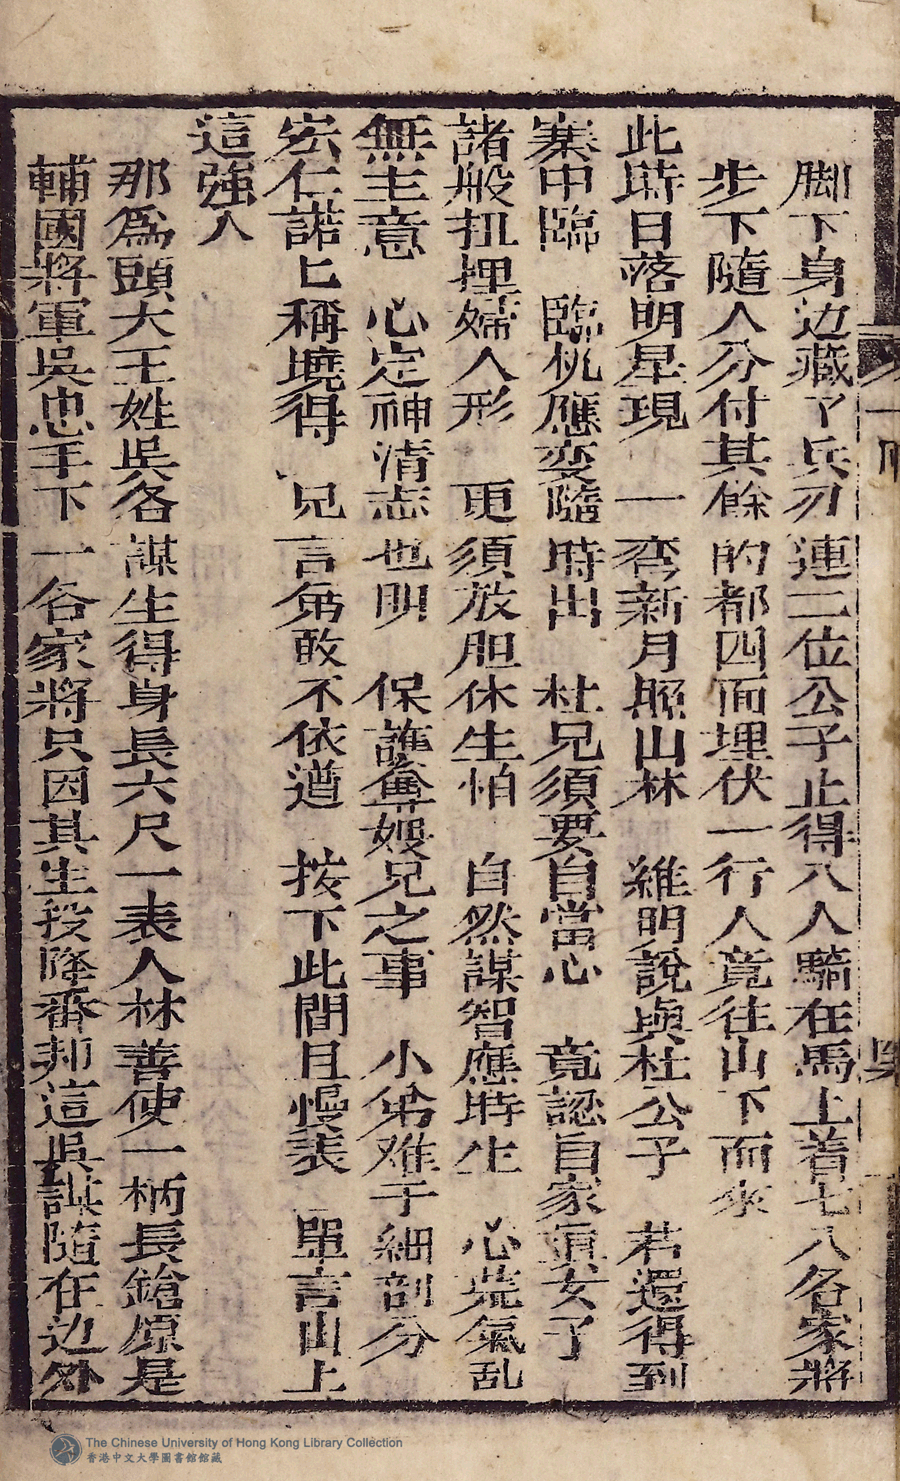 脚下身边藏了兵刃連二位公子止得八人騎在馬上着七八名家將
步下隨人分付其餘的都四面埋伏一行人竟往山下而來
此時日落明星現 一弯新月照山林 維明說與杜公子 若還得到
寨中臨 臨机應変隨時出 杜兄須要自當心 竟認自家眞女了
諸般扭揑婦人形 更須放胆休生怕 自然謀智應時生 心荒氣乱
無主意 心定神清志也明 保護尊嫂兄之事 小弟难于細剖分
宏仁諾匕稱堯得 兄言弟敢不依遵 按下此間且慢表 單言山上
這強人
那爲頭大王姓吳名謀生得身長六尺一表人材善使一柄長鎗原是
輔國將軍吳忠手下一名家將只因其主投降番邦這吳謀隨在边外
The Chinese University of Hong Kong Library Collection
香港中文大學圖書館館藏